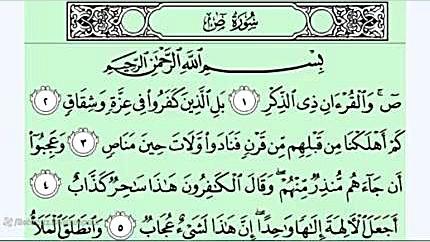 سُورَةُ صٓ
بِسْمِ ٱللَّهِ ٱلرَّحْمَٰنِ ٱلرَّحِيمِ
صٓ ۚ وَٱلْقُرْءَانِ ذِى ٱلذِّكْرِ ١ بَلِ ٱلَّذِينَ كَفَرُوا۟ فِى عِزَّةٍ وَشِقَاقٍ ٢
كَمْ أَهْلَكْنَا مِن قَبْلِهِم مِّن قَرْنٍ فَنَادَوا۟ وَّلَاتَ حِينَ مَنَاصٍ ٣ وَعَجِبُوٓا۟
أَن جَآءَهُم مُّنذِرٌ مِّنْهُمْ ۖ وَقَالَ ٱلْكَٰفِرُونَ هَٰذَا سَٰحِرٌ كَذَّابٌ ٤
أَجَعَلَ ٱلْءَالِهَةَ إِلَٰهًا وَٰحِدًا ۖ إِنَّ هَٰذَا لَشَىْءٌ عُجَابٌ ٥ وَٱنطَلَقَ ٱلْمَلَأُ